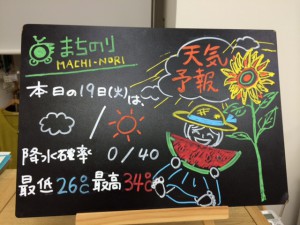 まちのり
MACHI-NORI
天気
予報
本日の19日(火)は、
/
降水確率 0/40
最低26℃ 最高34℃